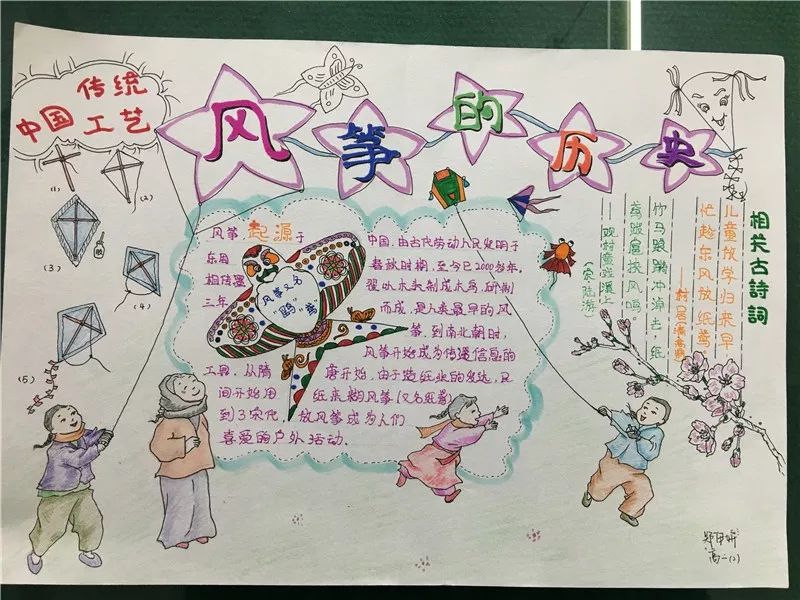 传统
中国工艺
风筝的历史
(1)
(2)
(3)
(4)
(5)
风筝起源于中国,由古代劳动人民发明于
东周春秋时期,至今已2000多年。
相传墨翟以木头制成木鸟,研制
三年而成,是人类最早的风
筝。到南北朝时,
风筝开始成为传递信息的
工具,从隋唐开始,由于造纸业的发达,民
间开始用纸来糊风筝(又名纸鸢)
到了宋代,放风筝成为人们
喜爱的户外活动.
风筝又名
"鹞""鸢"
相关古詩詞
儿童放学归来早,
忙趁东风放纸鸢。
——村居 清高鼎
竹马踉蹡冲淖去,纸
鸢跋扈挟风鸣。
——观村童戏溪上
(宋陆游)
高一(2)